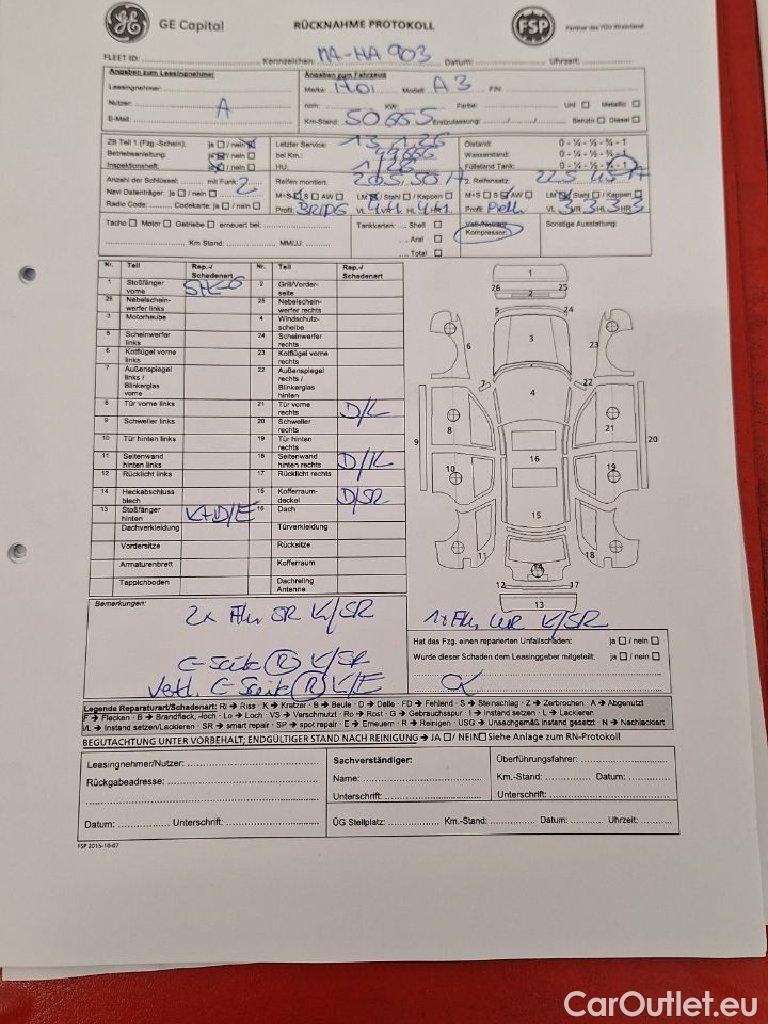 GE Capital
RÜCKNAHME PROTOKOLL
FSP
Partner des TÜV Rheinland
FLEET ID: Kennzeichen: MA-HA 903 Datum: Uhrzeit:
Angaben zum Leasingnehmer
Angaben zum Fahrzeug
Leasingnehmer:
Marke: Modell: A3 FIN:
Nutzer: A
KW: Farbe: Uni Metallic
E-Mail:
Km-Stand: 50665 Erstzulassung: Benzin Diesel
ZB Teil 1 (Fzg.-Schein): ja / nein
Letzter Service:
Ölstand: 0 – ¼ – ½ – ¾ – 1
Betriebsanleitung: ja / nein
bei Km.:
Wasserstand: 0 – ¼ – ½ – ¾ – 1
Inspektionsheft: ja / nein
HU: 1/26
Füllstand Tank: 0 – ¼ – ½ – ¾ – 1
Anzahl der Schlüssel: mit Funk: 2
Reifen montiert: 205/50/17
2. Reifensatz: 225/45/17
Navi Datenträger: Ja / nein
M+S S AW LM Stahl / Kappen
M+S S AW LM Stahl / Kappen
Radio Code: Codekarte: ja / nein
Profil: VL VR HL HR
Profil: VL 3 VR 3 HL 3 HR 3
Tacho Motor Getriebe erneuert bei:
Tankkarten: Shell
Kompressor:
Sonstige Ausstattung:
Aral
Km Stand: MM/JJ
Total
Nr. Teil Rep.-/ Schadenart Nr. Teil Rep.-/ Schadenart
1 Stoßfänger vorne
2 Grill/Vorderseite
26 Nebelscheinwerfer links
25 Nebelscheinwerfer rechts
3 Motorhaube
4 Windschutzscheibe
5 Scheinwerfer links
24 Scheinwerfer rechts
6 Kotflügel vorne links
23 Kotflügel vorne rechts
7 Außenspiegel links / Blinkerglas vorne
22 Außenspiegel rechts / Blinkerglas hinten
8 Tür vorne links
21 Tür vorne rechts D/L
9 Schweller links
20 Schweller rechts
10 Tür hinten links
19 Tür hinten rechts
11 Seitenwand hinten links
18 Seitenwand hinten rechts D/L
12 Rücklicht links
17 Rücklicht rechts
14 Heckabschlussblech
15 Kofferraumdeckel D/SR
13 Stoßfänger hinten K+D/E
16 Dach
Dachverkleidung
Türverkleidung
Vordersitze
Rücksitze
Armaturenbrett
Kofferraum
Teppichboden
Dachreling Antenne
1
26 25
2
5 24
6 3 23
7 22
4
8 21
9 20
16
10 19
15
11 18
14
12 17
13
Bemerkungen:
2x SR K/SR
K/SR
Hat das Fzg. einen reparierten Unfallschaden: ja / nein
Wurde dieser Schaden dem Leasinggeber mitgeteilt: ja / nein
C-Seite (R) K/SR
C-Seite (R) K/E
Legende Reparaturart/Schadenart: Ri → Riss · K → Kratzer · B → Beule · D → Delle · FD → Fehlend · S → Steinschlag · Z → Zerbrochen · A → Abgenutzt
F → Flecken · B → Brandfleck, -loch · Lo → Loch · VS → Verschmutzt · Ro → Rost · G → Gebrauchsspur · I → Instand setzen · L → Lackieren
I/L → Instand setzen/Lackieren · SR → smart repair · SP → spot repair · E → Erneuern · R → Reinigen · USG → Unsachgemäß instand gesetzt · N → Nachlackiert
BEGUTACHTUNG UNTER VORBEHALT; ENDGÜLTIGER STAND NACH REINIGUNG → JA / NEIN Siehe Anlage zum RN-Protokoll
Leasingnehmer/Nutzer:
Sachverständiger:
Überführungsfahrer:
Rückgabeadresse:
Name:
Km.-Stand: Datum:
Unterschrift:
Unterschrift:
Datum: Unterschrift:
ÜG Stellplatz: Km.-Stand: Datum: Uhrzeit:
FSP 2015-10-07
CarOutlet.eu